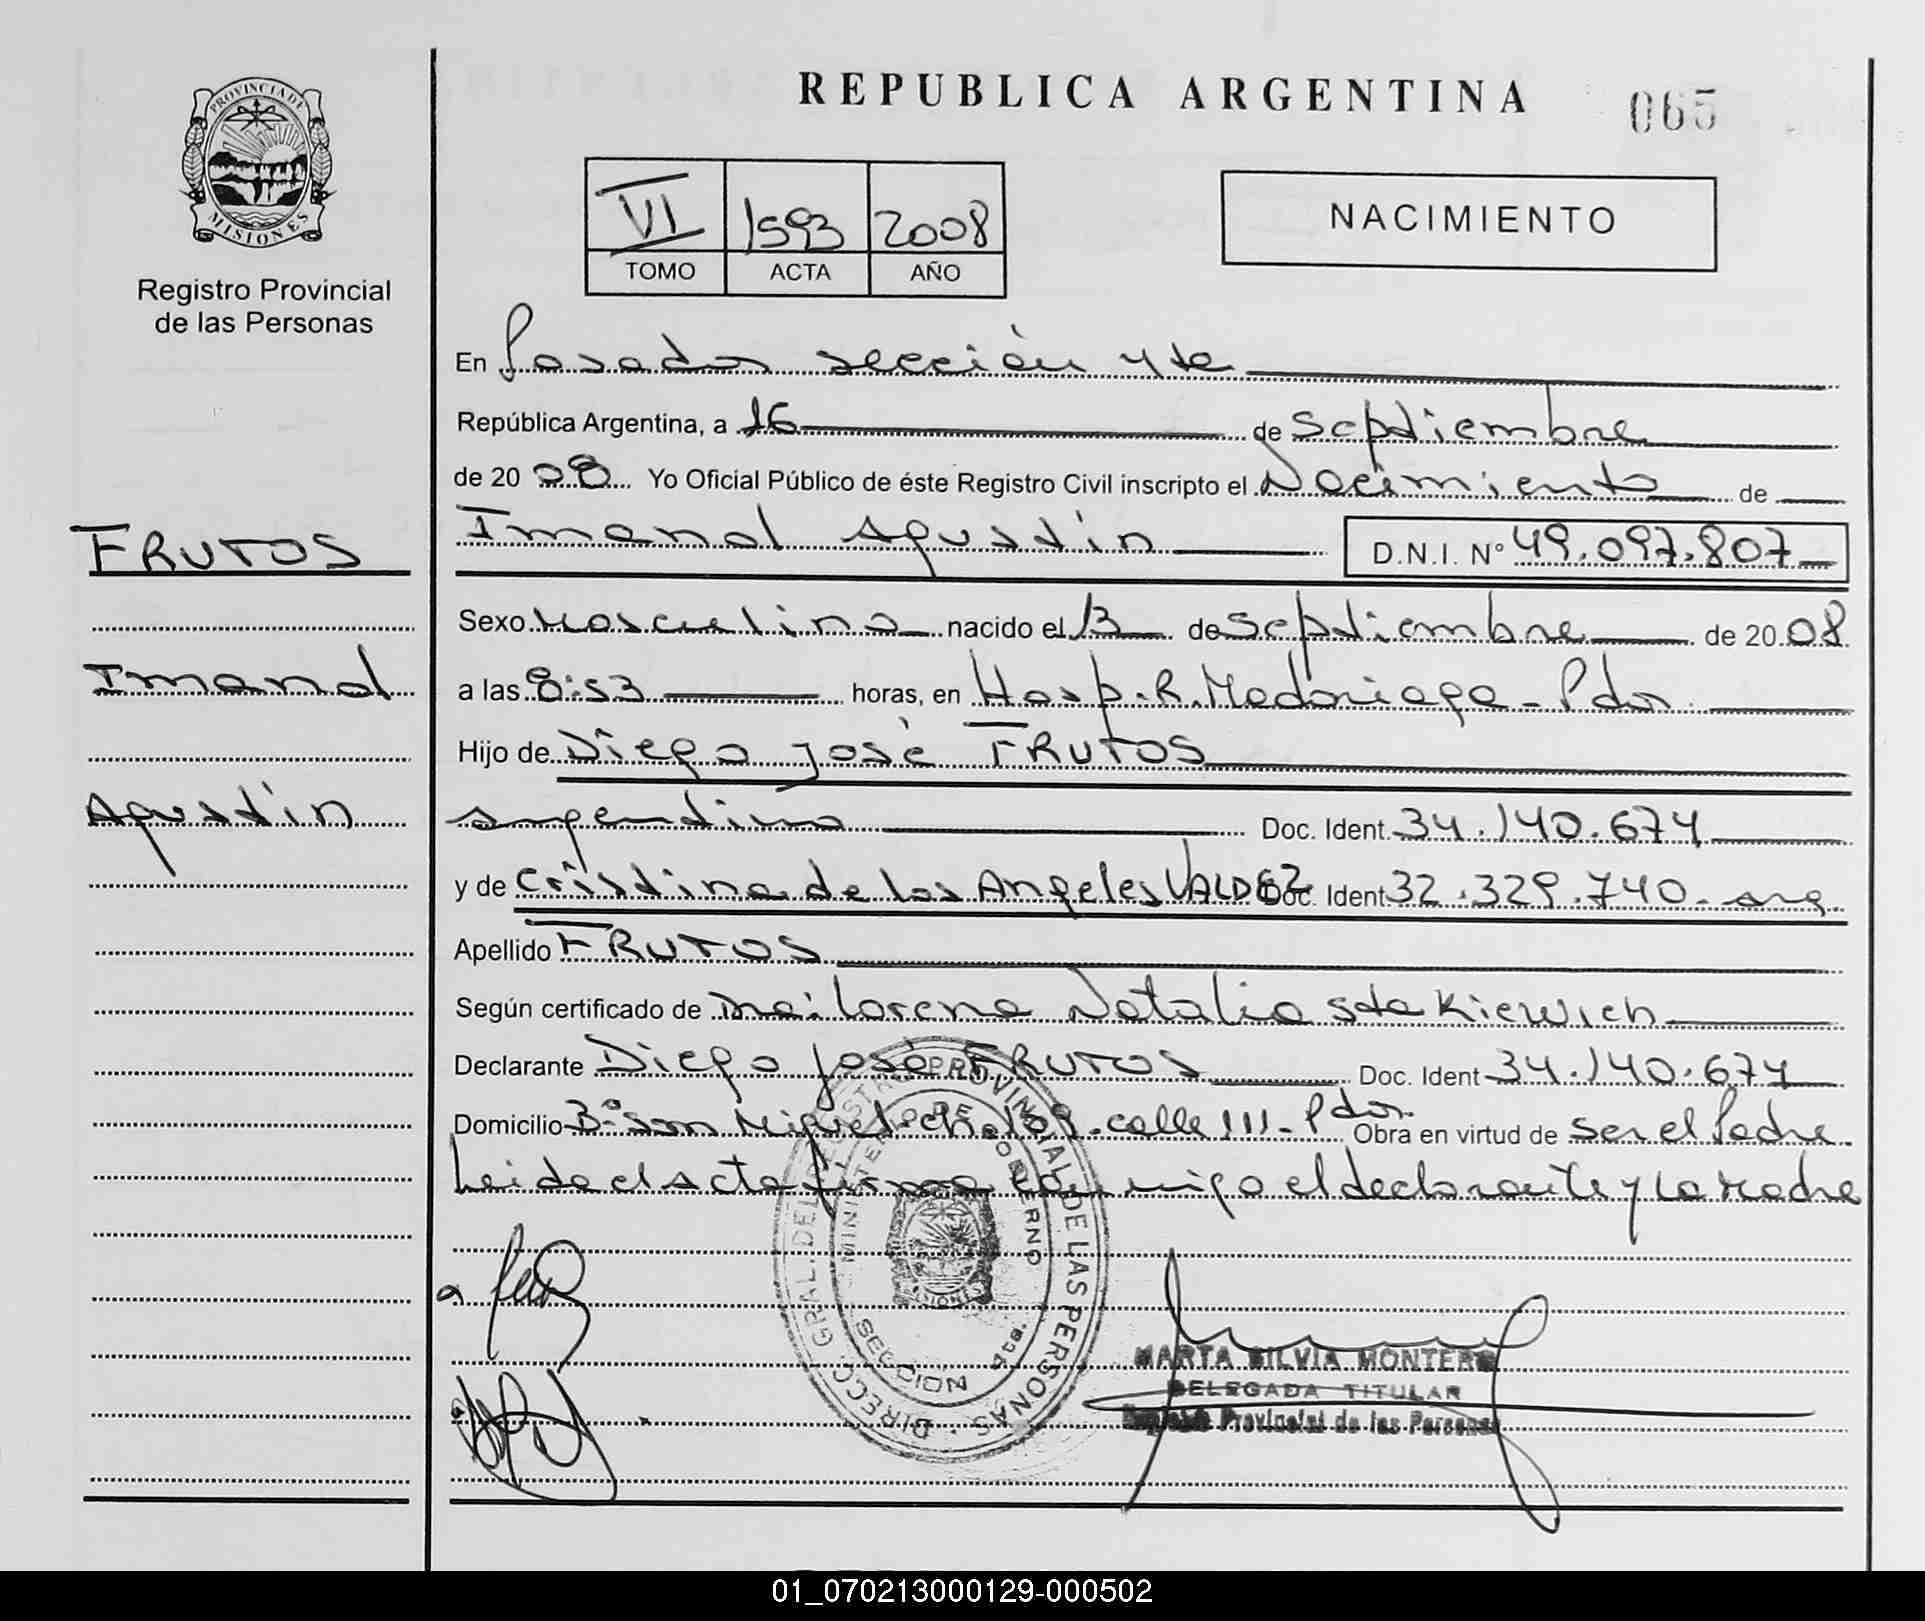 REPUBLICA ARGENTINA
065
PROVINCIA DE
MISIONES
Registro Provincial
de las Personas
VI 1593 2008
TOMO ACTA AÑO
NACIMIENTO
En Posadas sección 4ta
República Argentina, a 16 de Septiembre
de 2008 Yo Oficial Público de éste Registro Civil inscripto el Nacimiento de
Imanol Agustín D.N.I. N° 49.097.807
FRUTOS
Imanol
Agustín
Sexo Masculino nacido el 13 de Septiembre de 2008
a las 8:53 horas, en Hosp. R. Madariaga - Pdas
Hijo de Diego José FRUTOS
argentino Doc. Ident. 34.140.674
y de Cristina de los Angeles VALDEZ Doc. Ident 32.329.740 - arg
Apellido FRUTOS
Según certificado de Lorena Natalia
Declarante Diego José FRUTOS Doc. Ident 34.140.674
Domicilio B° San Miguel - ch. 109 - calle 111 - Pdas. Obra en virtud de ser el Padre
Leida el acta firma conmigo el declarante y la Madre
DIRECC. GRAL. DEL REGISTRO PROVINCIAL DE LAS PERSONAS
MINISTERIO DE GOBIERNO
SECCION 4ta.
MISIONES
MARTA SILVIA MONTERO
DELEGADA TITULAR
Registro Provincial de las Personas
01_070213000129-000502